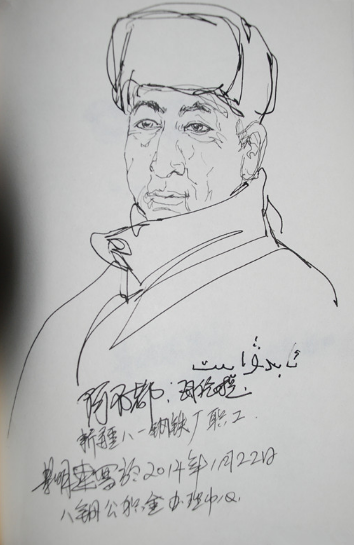 ئابدۇۋاىت
阿不都·
新疆八一钢铁厂职工.
明 写於2014年1月22日
八钢公积金办理中心